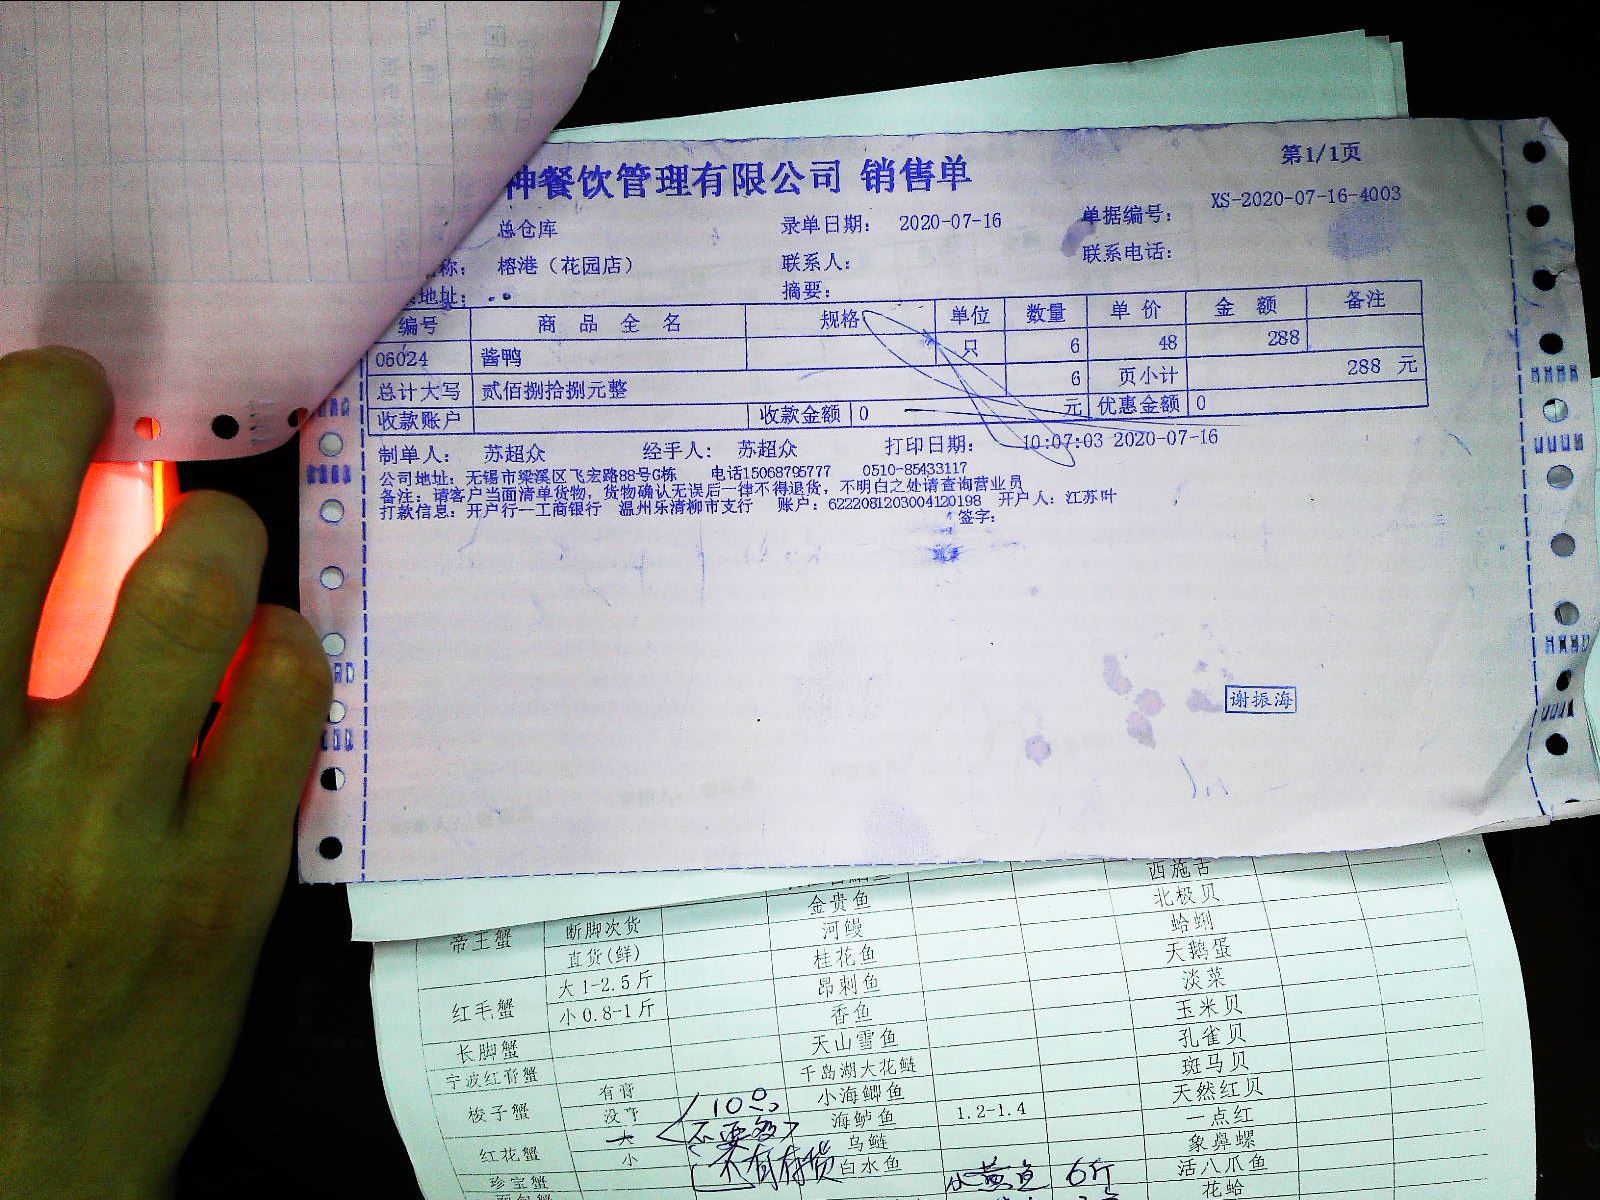 神餐饮管理有限公司 销售单
第1/1页
总仓库 录单日期： 2020-07-16 单据编号： XS-2020-07-16-4003
称： 榕港（花园店） 联系人： 联系电话：
地址： 摘要：
编号 商品全名 规格 单位 数量 单价 金额 备注
06024 酱鸭 只 6 48 288
总计大写 贰佰捌拾捌元整 6 页小计 288 元
收款账户 收款金额 0 元 优惠金额 0
制单人： 苏超众 经手人： 苏超众 打印日期： 10:07:03 2020-07-16
公司地址：无锡市梁溪区飞宏路88号G栋 电话15068795777 0510-85433117
备注：请客户当面清单货物，货物确认无误后一律不得退货，不明白之处请查询营业员
打款信息：开户行--工商银行 温州乐清柳市支行 账户：6222081203004120198 开户人：江苏叶
签字：
谢振海
西施舌
帝王蟹 断脚次货 金贵鱼 北极贝
直货(鲜) 河鳗 蛤蜊
红毛蟹 大1-2.5斤 桂花鱼 天鹅蛋
小0.8-1斤 昂刺鱼 淡菜
香鱼 玉米贝
长脚蟹 天山雪鱼 孔雀贝
宁波红膏蟹 千岛湖大花鲢 斑马贝
梭子蟹 有膏 小海鲫鱼 天然红贝
没膏 100 海鲈鱼 1.2-1.4 一点红
红花蟹 大 不要多 乌鲢 象鼻螺
小 不有存货 白水鱼 活八爪鱼
珍宝蟹 小黄鱼 6斤 花蛤
面包蟹